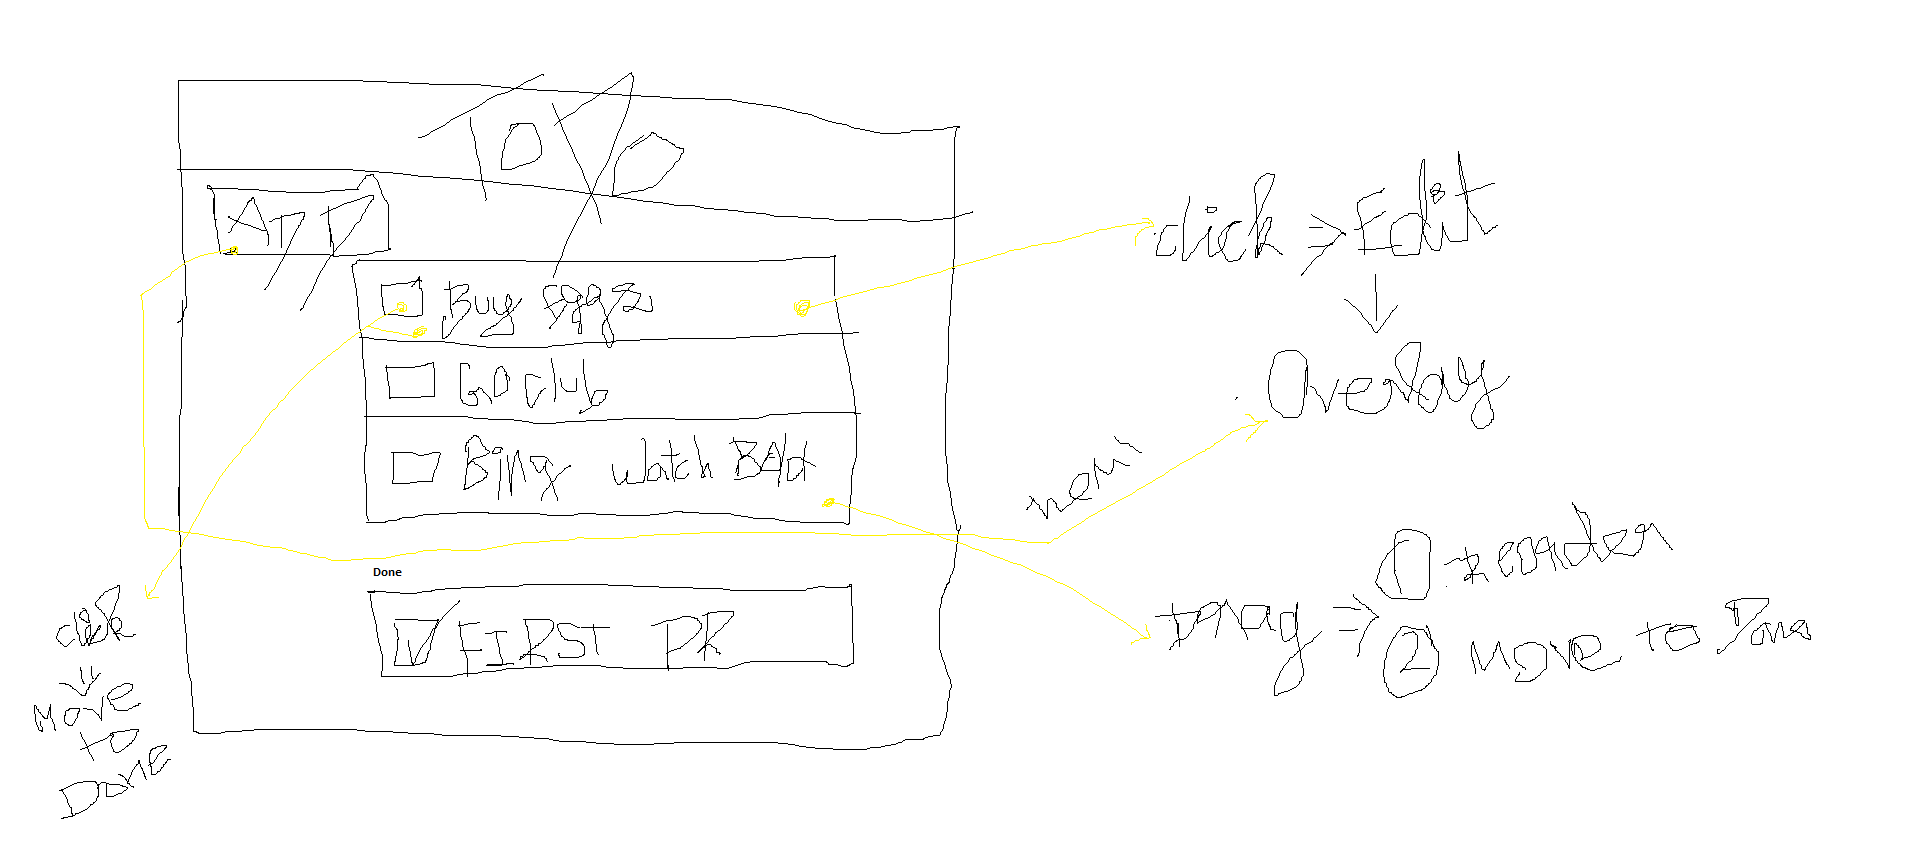 TODO
ADD
Buy Eggs
GO club
Bing watch
Done
FIRST PR
click ⇒ Edit
↓
Overlay
Drag ⇒ ① reorder
② Move to Done
click
⇓
Move
to
Done